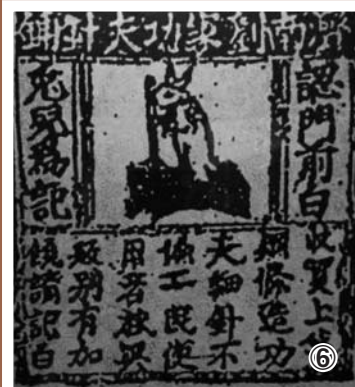 濟南劉家功夫針鋪
認門前白
兔兒爲記
收買上等
鋼條造功
夫細針不
偷工民便
用若被興
販別有加
饒請記白
⑥